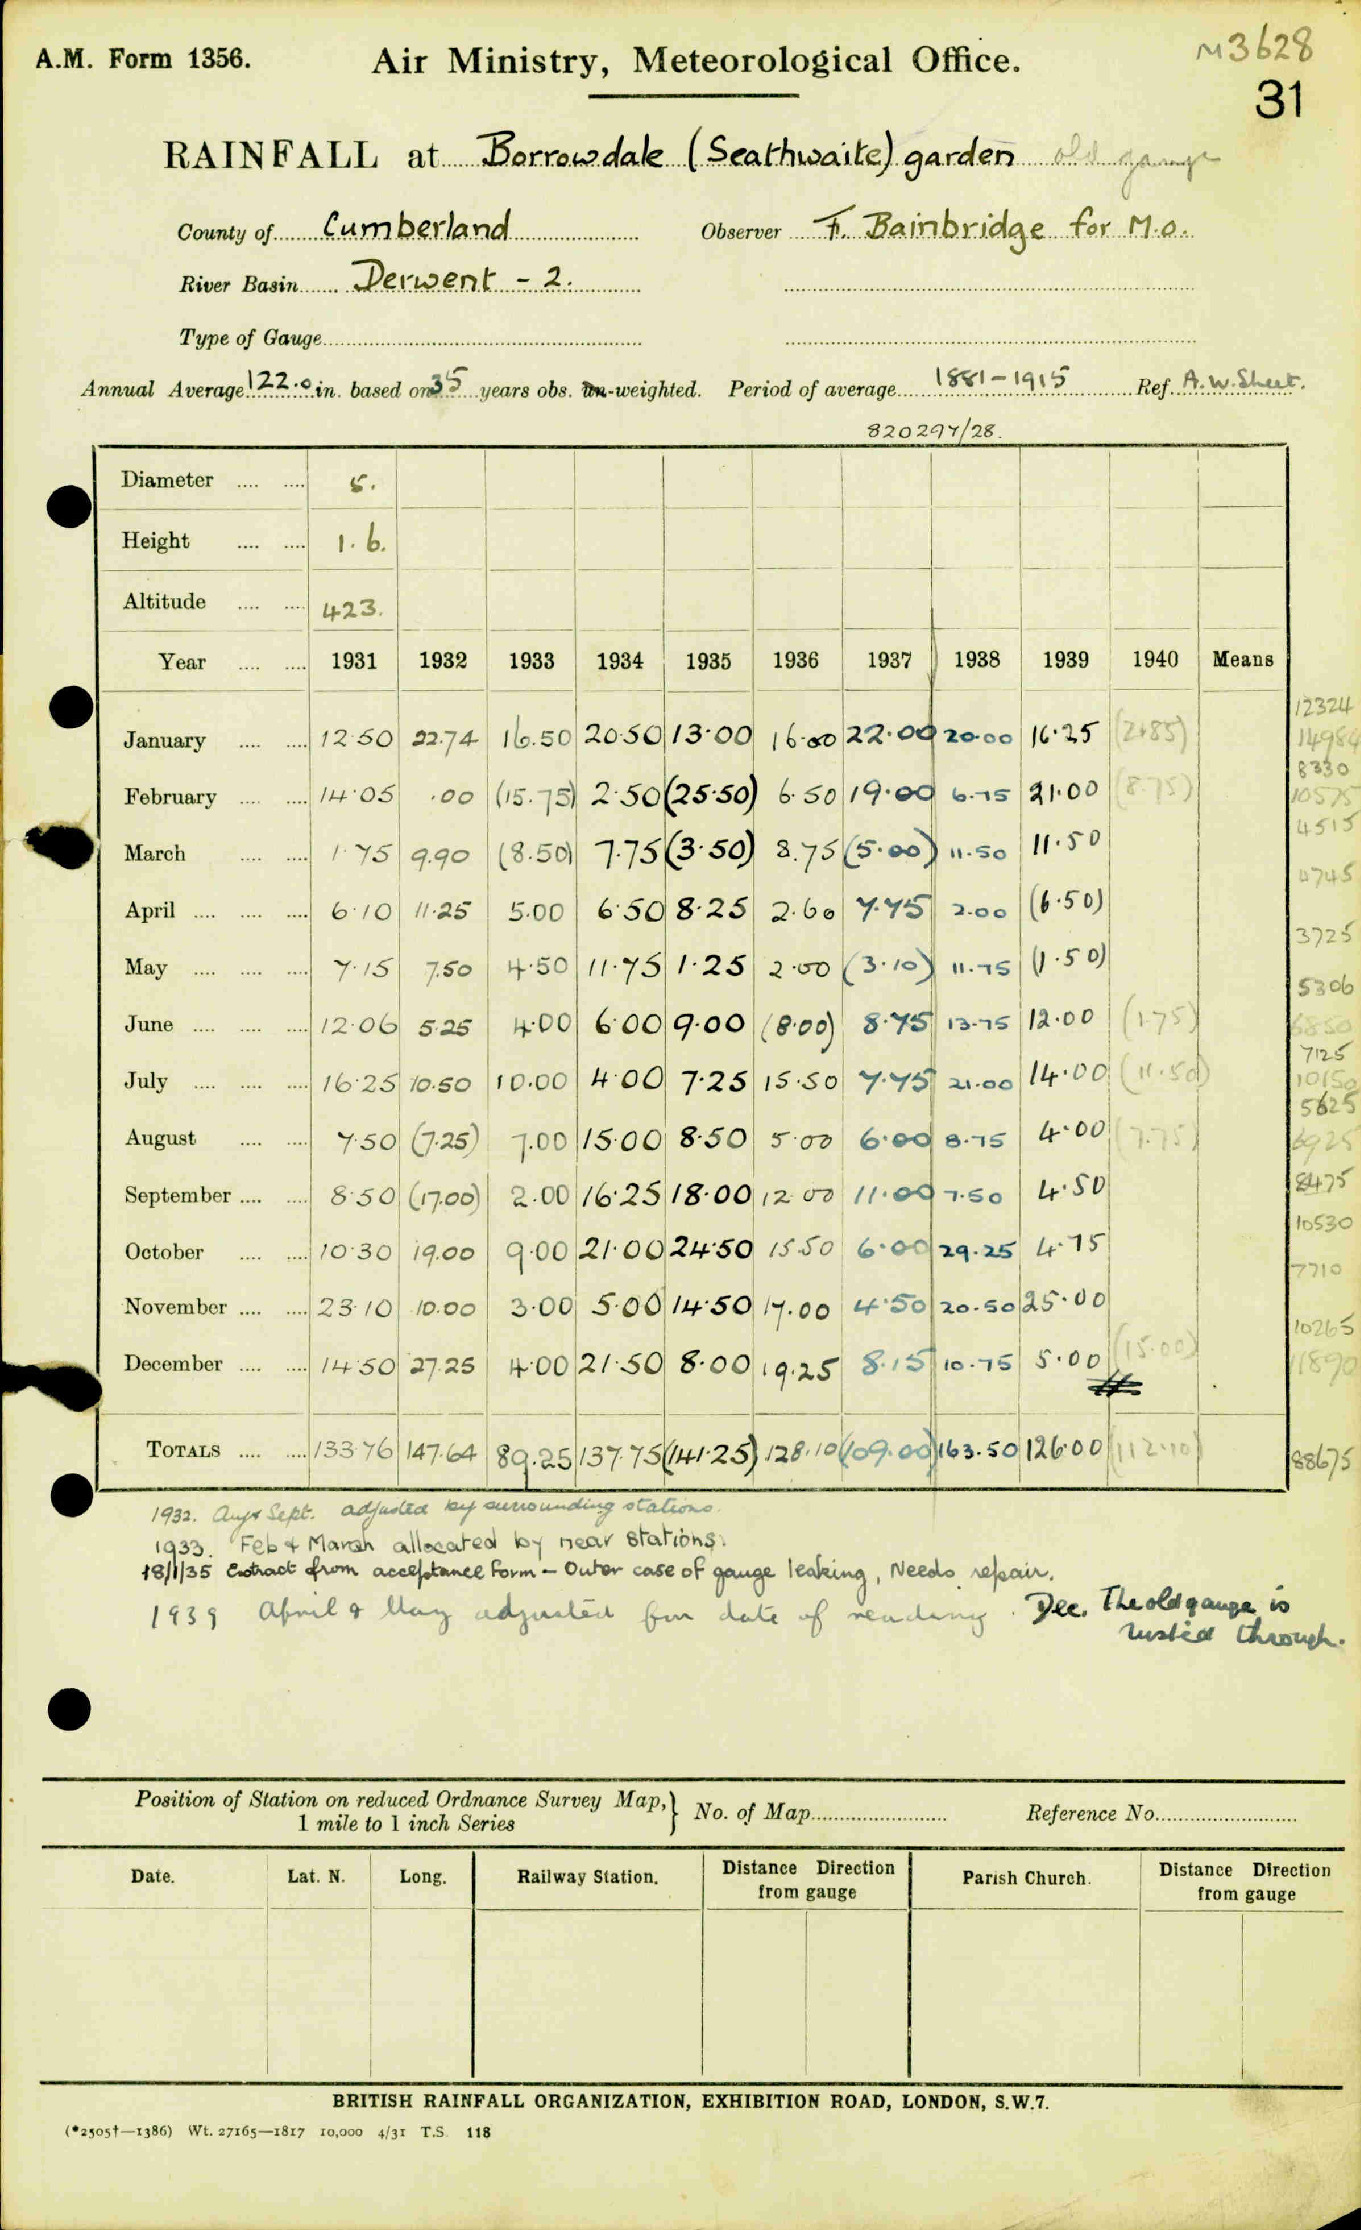 A.M. Form 1356. Air Ministry, Meteorological Office. M3628
31
RAINFALL at Borrowdale (Seathwaite) garden old gauge
County of Cumberland Observer F. Bainbridge for M.O.
River Basin Derwent - 2.
Type of Gauge
Annual Average 122.0 in. based on 35 years obs. un-weighted. Period of average 1881-1915 Ref. A.W. Sheet.
820297/28.
Diameter 5.
Height 1.6.
Altitude 423.
Year 1931 1932 1933 1934 1935 1936 1937 1938 1939 1940 Means
12324
January 12.50 22.74 16.50 20.50 13.00 16.00 22.00 20.00 16.25 (2.85) 14984
8330
February 14.05 .00 (15.75) 2.50 (25.50) 6.50 19.00 6.75 21.00 (8.75) 10575
4515
March 1.75 9.90 (8.50) 7.75 (3.50) 8.75 (5.00) 11.50 11.50
4745
April 6.10 11.25 5.00 6.50 8.25 2.60 7.75 2.00 (6.50)
3725
May 7.15 7.50 4.50 11.75 1.25 2.00 (3.10) 11.75 (1.50)
5306
June 12.06 5.25 4.00 6.00 9.00 (8.00) 8.75 13.75 12.00 (1.75) 6850
7125
July 16.25 10.50 10.00 4.00 7.25 15.50 7.75 21.00 14.00 (11.50) 10150
5625
August 7.50 (7.25) 7.00 15.00 8.50 5.00 6.00 8.75 4.00 (7.75) 6925
September 8.50 (17.00) 2.00 16.25 18.00 12.00 11.00 7.50 4.50 8475
10530
October 10.30 19.00 9.00 21.00 24.50 15.50 6.00 29.25 4.75
7710
November 23.10 10.00 3.00 5.00 14.50 17.00 4.50 20.50 25.00
10265
December 14.50 27.25 4.00 21.50 8.00 19.25 8.15 10.75 5.00 (15.00) 11890
TOTALS 133.76 147.64 89.25 137.75 (141.25) 128.10 (109.00) 163.50 126.00 (112.10) 88675
1932. Aug & Sept. adjusted by surrounding stations.
1933. Feb & March allocated by near stations.
18/1/35 Extract from acceptance form - Outer case of gauge leaking, Needs repair.
1939 April & May adjusted for date of reading. Dec. The old gauge is
rusted through.
Position of Station on reduced Ordnance Survey Map,} No. of Map Reference No.
1 mile to 1 inch Series
Date. Lat. N. Long. Railway Station. Distance Direction from gauge Parish Church. Distance Direction from gauge
BRITISH RAINFALL ORGANIZATION, EXHIBITION ROAD, LONDON, S.W.7.
(*2505†—1386) Wt. 27165—1817 10,000 4/31 T.S. 118